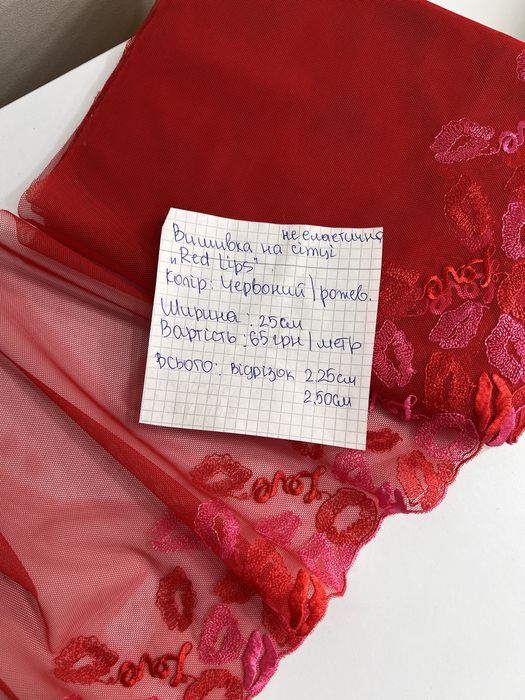 не еластична
Вишивка на сітці
"Red Lips"
Колір: Червоний/рожев.
Ширина: 25см
Вартість: 65грн/метр
Всього: відрізок 2,25см
2,50см
Love
Love
Love